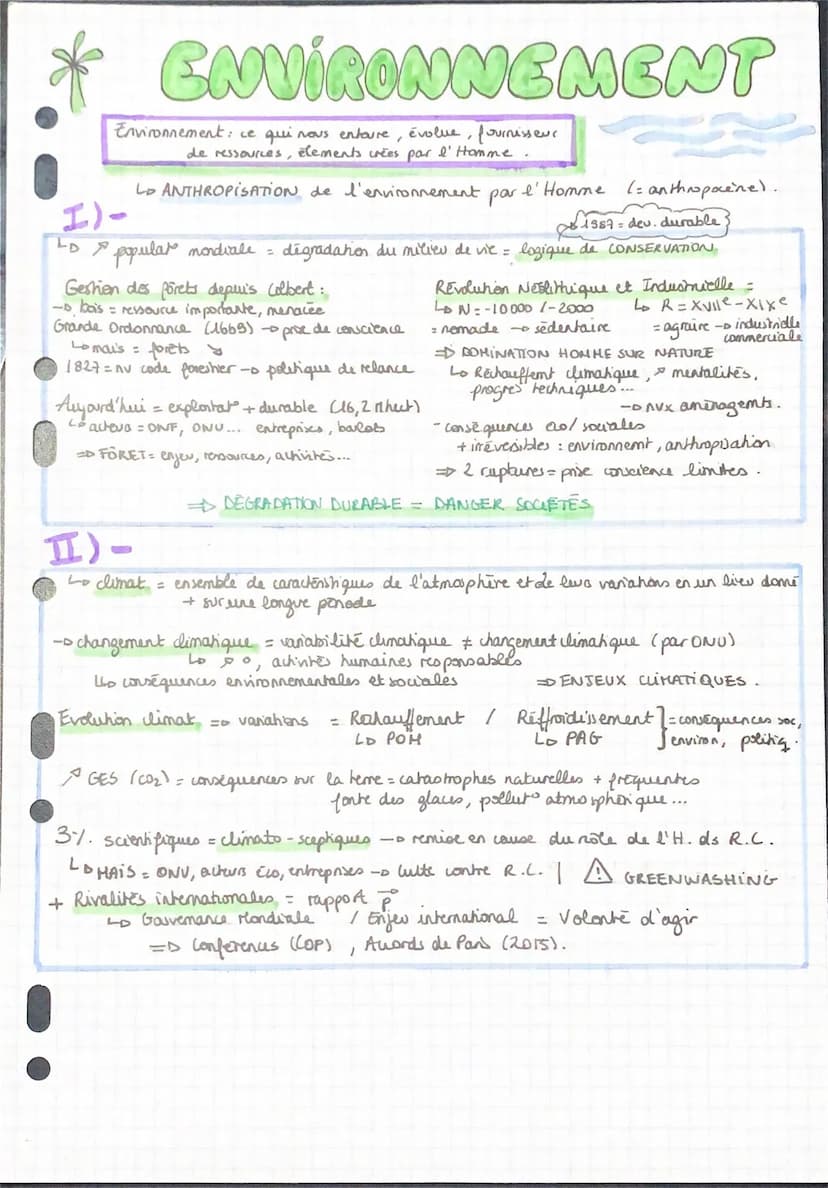 ENVIRONNEMENT
Environnement : ce qui nous entoure, évolue, fournisseur
de ressources, élements crées par l'Homme.
↳ ANTHROPISATION de l'environnement par l'Homme (= anthropocène).
I) -
1987 = dev. durable
↳ ↗ populat° mondiale = dégradation du milieu de vie = logique de CONSERVATION
Gestion des fôrets depuis Colbert :
→ bois = ressource importante, menacée
Grande Ordonnance (1669) → prise de conscience
↳ mais = forêts ↘
1827 = nv code forestier → politique de relance
Aujourd'hui = exploitat° + durable (16,2 M hect)
↳ acteurs = ONF, ONU... entreprises,
⇒ FÔRET = enjeu, ressources, activités...
Révolution Néolithique et Industrielle =
↳ N = -10 000 / -2000 ↳ R = XVIIe - XIXe
= nomade → sédentaire = agraire → industrielle
commerciale
⇒ DOMINATION HOMME SUR NATURE
↳ Réchauffemt climatique, ↗ mentalités,
progrès techniques...
→ nvx aménagemts.
- conséquences éco/sociales
+ irréversibles : environnemt, anthropisation
⇒ 2 ruptures = prise conscience limites.
⇒ DÉGRADATION DURABLE = DANGER SOCIÉTÉS
II) -
↳ climat = ensemble de caractéristiques de l'atmosphère et de leurs variations en un lieu donné
+ sur une longue période
→ changement climatique = variabilité climatique ≠ changement climatique (par ONU)
↳ activités humaines responsables
↳ conséquences environnementales et sociales ⇒ ENJEUX CLIMATIQUES.
Evolution climat ⇒ variations = Réchauffement / Réffroidissement ] = conséquences soc,
↳ POM ↳ PAG environ, politiq.
↗ GES (CO2) = conséquences sur la terre = catastrophes naturelles + fréquentes
fonte des glaces, pollut° atmosphérique...
3%. scientifiques = climato-sceptiques → remise en cause du rôle de l'H. ds R.C.
↳ MAIS = ONU, acteurs éco, entreprises → lutte contre R.C. | ⚠ GREENWASHING
+ Rivalités internationales = rapport p⃗
↳ Gouvernance Mondiale / Enjeu international = Volonté d'agir
⇒ Conférences (COP), Accords de Paris (2015).